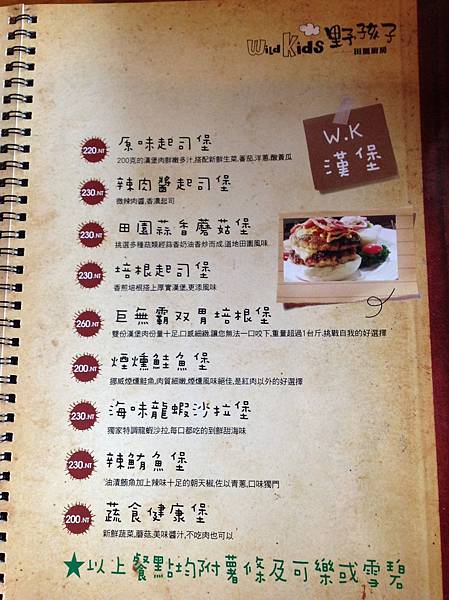 Wild Kids 野孩子
田園廚房
W.K
漢堡
220.NT 原味起司堡
200克的漢堡肉鮮嫩多汁,搭配新鮮生菜,番茄,洋蔥,酸黃瓜
230.NT 辣肉醬起司堡
微辣肉醬,香濃起司
230.NT 田園蒜香蘑菇堡
挑選多種菇類經蒜香奶油香炒而成,道地田園風味
230.NT 培根起司堡
香煎培根搭上厚實漢堡,更添風味
260.NT 巨無霸双胃培根堡
雙份漢堡肉份量十足,口感細緻,讓您無法一口咬下,重量超過1台斤,挑戰自我的好選擇
200.NT 煙燻鮭魚堡
挪威煙燻鮭魚,肉質細嫩,煙燻風味絕佳,是紅肉以外的好選擇
230.NT 海味龍蝦沙拉堡
獨家特調龍蝦沙拉,每口都吃的到鮮甜海味
230.NT 辣鮪魚堡
油漬鮪魚加上辣味十足的朝天椒,佐以青蔥,口味獨門
200.NT 蔬食健康堡
新鮮蔬菜,蘑菇,美味醬汁,不吃肉也可以
★以上餐點均附薯條及可樂或雪碧